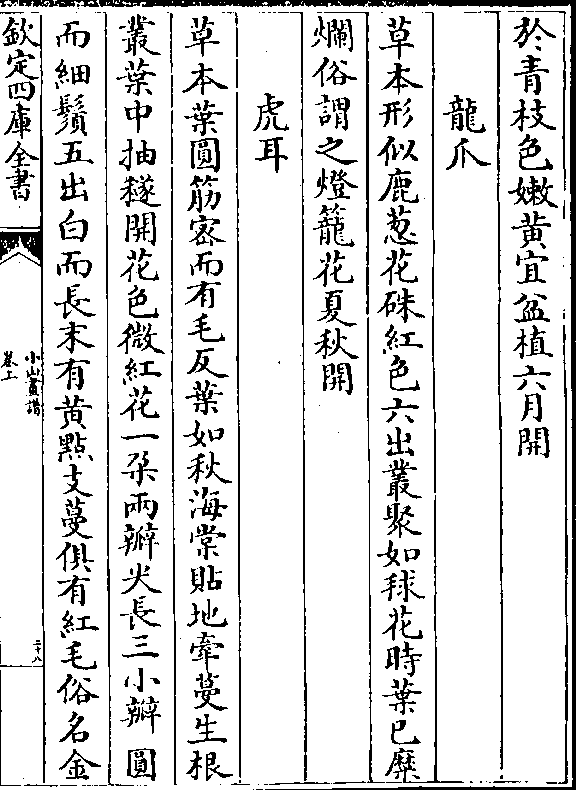 於青枝色嫩黃宜盆植六月開
龍爪
草本形似鹿葱花硃紅色六出叢聚如毬花時葉已糜
爛俗謂之燈籠花夏秋開
虎耳
草本葉圓筋密而有毛反葉如秋海棠貼地牽蔓生根
叢葉中抽䆃開花色微紅花一朶兩瓣尖長三小瓣圓
而細鬚五出白而長末有黃點支蔓俱有紅毛俗名金
欽定四庫全書
小山畫譜
卷上
二十八